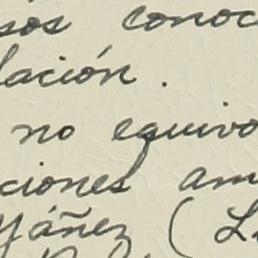 sos conoc
lación.
no equivo
ciones am
Yáñez (L